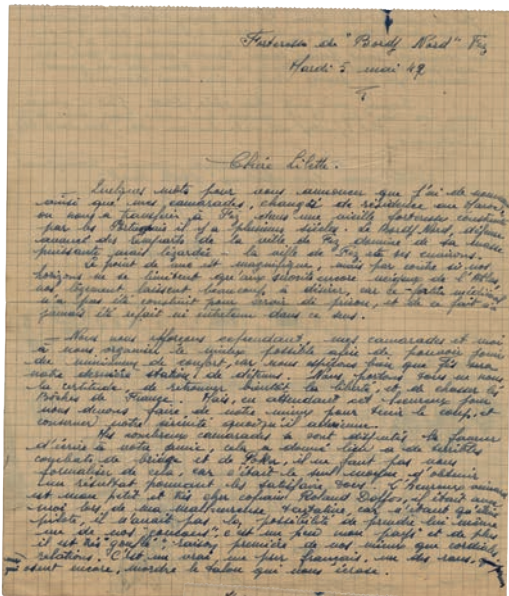 Forteresse de "Bordj Nord" Fez
Mardi 5 mai 42
Chère Lilette.
— Quelques mots pour vous annoncer que j'ai de nouveau
ainsi que mes camarades, changé de résidence au Maroc
on nous a transféré à Fez dans une vieille forteresse construite
par les Portugais il y a plusieurs siècles. Le Bordj Nord, défense
avancée des remparts de la ville de Fez domine de sa masse
puissante jamais lézardée - la ville de Fez et ses environs.
Le point de vue est magnifique, mais par contre si nos
horizons ne se limitent qu'aux encore neigeux de l'Atlas,
nos logements laissent beaucoup à désirer, car
n'a pas été construit pour servir de prison, et de ce fait n'a
jamais été refait ni entretenu dans ce sens.
— Nous nous efforçons cependant, mes camarades et moi
à nous organiser le mieux possible afin de pouvoir jouir
du minimum de confort, car nous espérons bien que Fez sera
notre dernière station de détenus. Nous portons tous en nous
la certitude de retrouver bientôt la liberté, et de chasser les
Boches de France. Mais, en attendant cet heureux jour
nous devons faire de notre mieux pour tenir le coup, et
conserver notre sérénité quoiqu'il advienne.
— Mes nombreux camarades se sont disputés la faveur
d'écrire à votre amie, cela a donné lieu à de terribles
combats de et de Poker, il ne faut pas vous
formaliser de cela, car c'était le seul moyen d'obtenir
un résultat pouvant les satisfaire tous. L'heureux gagnant
est mon petit et très cher copain Roland il était avec
moi lors de ma malheureuse tentative, car n'étant qu'élève
pilote, il n'avait pas la possibilité de prendre lui-même
un de nos "coucous", c'est un peu mon pays et de plus
il est très "gentil": raison première de nos mieux que cordiales
relations. C'est un vrai, un pur français, un des rares qui
osent encore, mordre le talon qui nous écrase.